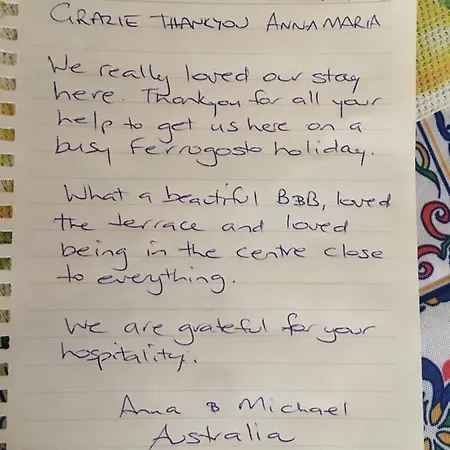 GRAZIE THANKYOU ANNAMARIA
We really loved our stay
here. Thankyou for all your
help to get us here on a
busy Ferrogosto holiday.
What a beautiful B&B, loved
the terrace and loved
being in the centre close
to everything.
We are grateful for your
hospitality.
Anna & Michael
Australia